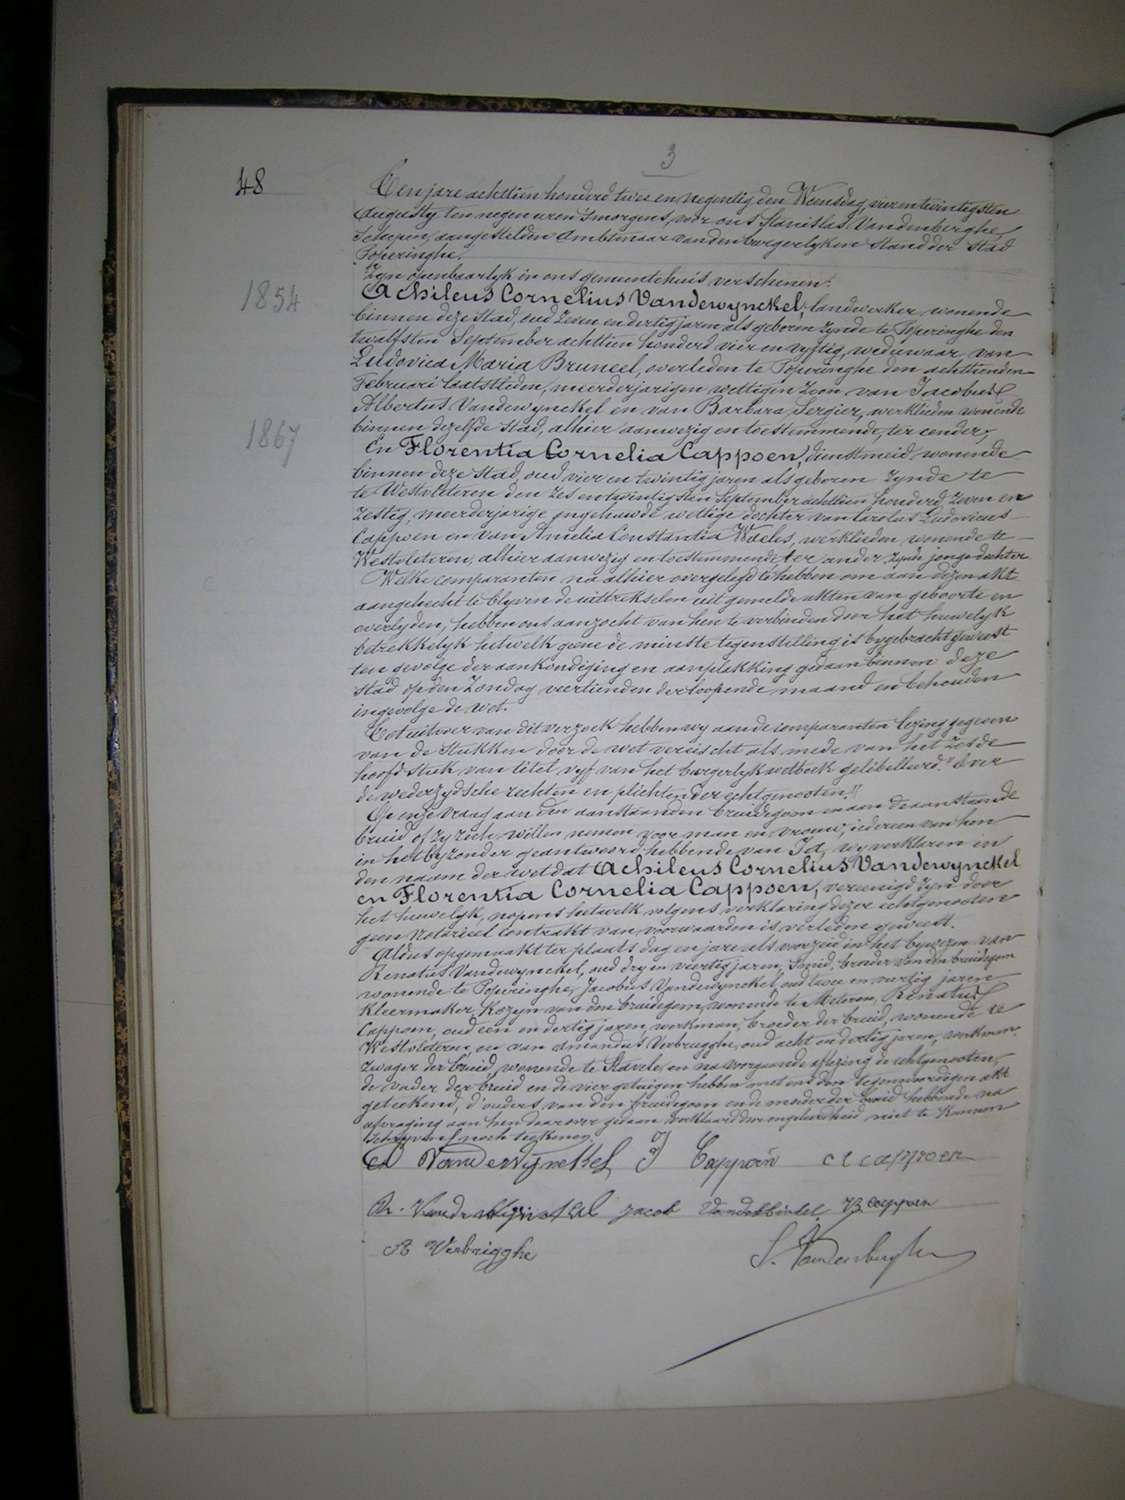 3
48
Ten jare achttien honderd twee en negentig den Woensdag vierentwintigsten
Augusty, ten negen uren smorgens, voor ons Stanislas Vandenberghe,
Schepen, aangestelden Ambtenaar van den burgerlyken stand der stad
Poperinghe.
Zyn openbaarlyk in ons gemeentehuis verschenen:
1854
Achileus Cornelius Vandewynckel, landwerker, wonende
binnen deze stad, oud zeven en dertig jaren als geboren zynde te Poperinghe den
twalfsten September achttien honderd vier en vyftig, weduwaar van
Ludovica Maria Bruneel, overleden te Poperinghe den achttienden
Februari laatstleden, meerderjarigen wettigen zoon van Jacobus
Albertus Vandewynckel en van Barbara Sergier, werklieden wonende
binnen dezelfde stad, alhier aanwezig en toestemmende, ter eender,
1867
En Florentia Cornelia Cappoen, dienstmeid, wonende
binnen deze stad, oud vier en twintig jaren als geboren zynde te
te Westvleteren den zes en twintigsten September achttien honderd zeven en
zestig, meerderjarige ongehuwde wettige dochter van Carolus Ludovicus
Cappoen en van Amelia Constantia Waels, werklieden, wonende te
Westvleteren, alhier aanwezig en toestemmende, ter ander zynde jonge dochter
Welke comparanten na alhier overgelegd te hebben om aan dezen akt
aangehecht te blyven de uittrekselen uit gemelde akten van geboorte en
overlyden, hebben ons aanzocht van hen te verbinden door het huwelyk
betrekkelyk hetwelk geene de minste tegenstelling is bygebracht geweest
ten gevolge der aankondiging en aanplakking gedaan binnen deze
stad op den Zondag veertienden der loopende maand en behouden
ingevolge de wet.
Tot uitvoer van dit verzoek hebben wy aan de comparanten lezing gegeven
van de stukken door de wet vereischt als mede van het zesde
hoofdstuk van titel vyf van het burgerlyk wetboek gelibelleerd: "Over
de wederzydsche rechten en plichten der echtgenooten."
Op onze vraag aan den aanstaanden bruidegom en aan de aanstaande
bruid of zy zich willen nemen voor man en vrouw, iedereen van hen
in het byzonder geantwoord hebbende van Ja, wy verklaren in
den naam der wet dat Achileus Cornelius Vandewynckel
en Florentia Cornelia Cappoen, vereenigd zyn door
het huwelyk, nopens hetwelk volgens verklaring dezer echtgenooten
geen Notarieel Contrakt van voorwaarden is verleden geweest.
Aldus opgemaakt ter plaats dag en jare als voorzeid in het bywezen van
Renatus Vandewynckel, oud dry en veertig jaren, smid, broeder van den bruidegom
wonende te Poperinghe, Jacobus Vandewynckel, oud twee en veertig jaren
kleermaker, kozyn van den bruidegom, wonende te Meteren, Renatus
Cappoen, oud een en dertig jaren, werkman, broeder der bruid, wonende te
Westvleteren, en van Amandus Verbrugghe, oud acht en dertig jaren, werkman,
zwager der bruid, wonende te Stavele, en na voorgaande aflezing de echtgenooten,
de vader der bruid en de vier getuigen hebben met ons den tegenwoordigen akt
geteekend, d'ouders van den bruidegom en de moeder der bruid hebbende na
afvraging aan hen daarover gedaan verklaard door ongeleerdheid niet te konnen
schryven noch teekenen.
Vandewynckel F Cappoen c l cappoen
R. Vandewynckel jacob Vandewinkel R cappoen
A Verbrigghe S. Vandenberghe